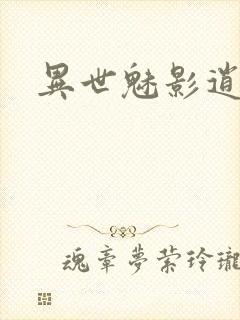 異世魅影逍
魂牽夢縈玲瓏